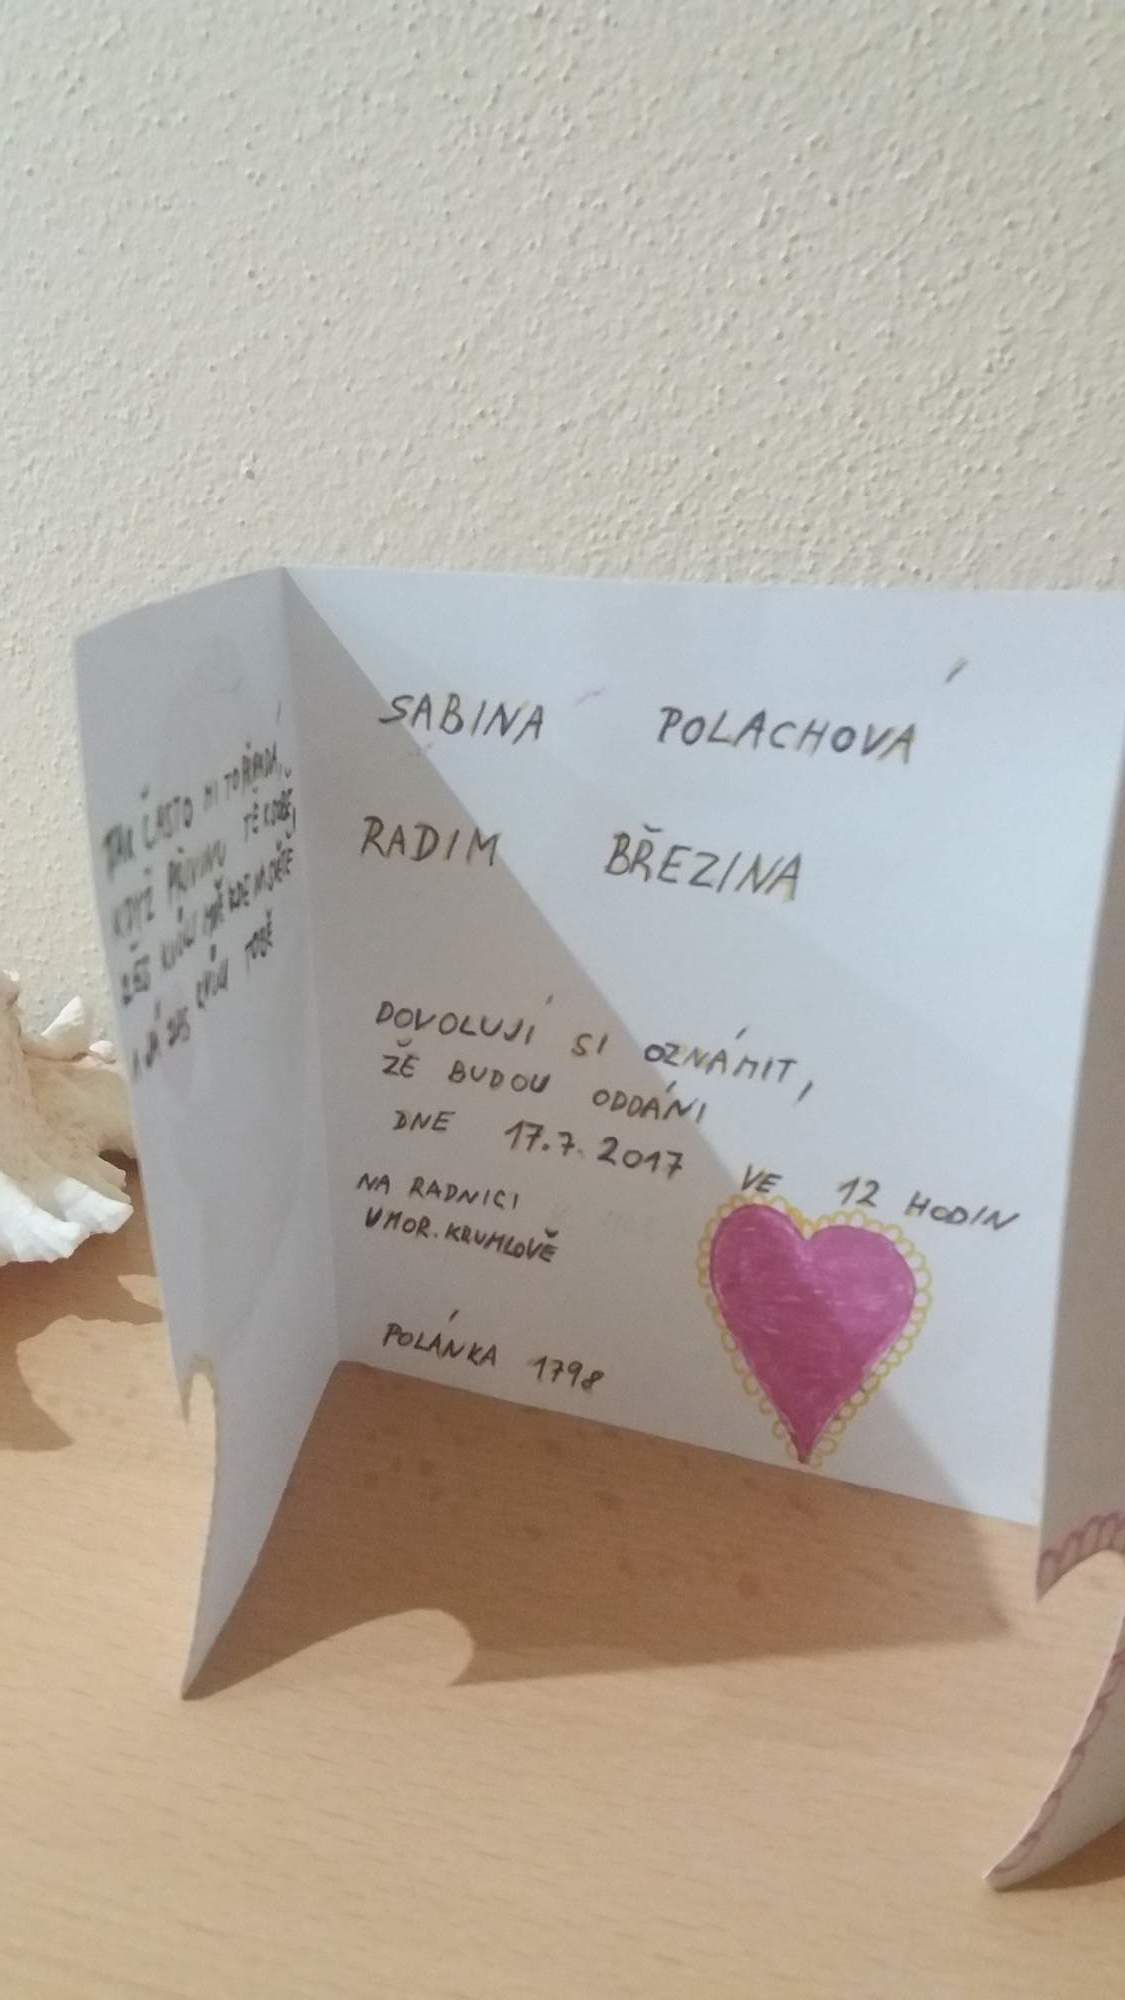 TAK ČASTO MI TO PŘIPADÁ,
KDYŽ PŘIVINU TĚ K SOBĚ,
ŽEŠ KVŮLI MNĚ ZDE NA SVĚTĚ
A JÁ ZAS KVŮLI TOBĚ
SABINA POLACHOVÁ
RADIM BŘEZINA
DOVOLUJÍ SI OZNÁMIT,
ŽE BUDOU ODDÁNI
DNE 17.7.2017 VE 12 HODIN
NA RADNICI
V MOR. KRUMLOVĚ
POLÁNKA 1798